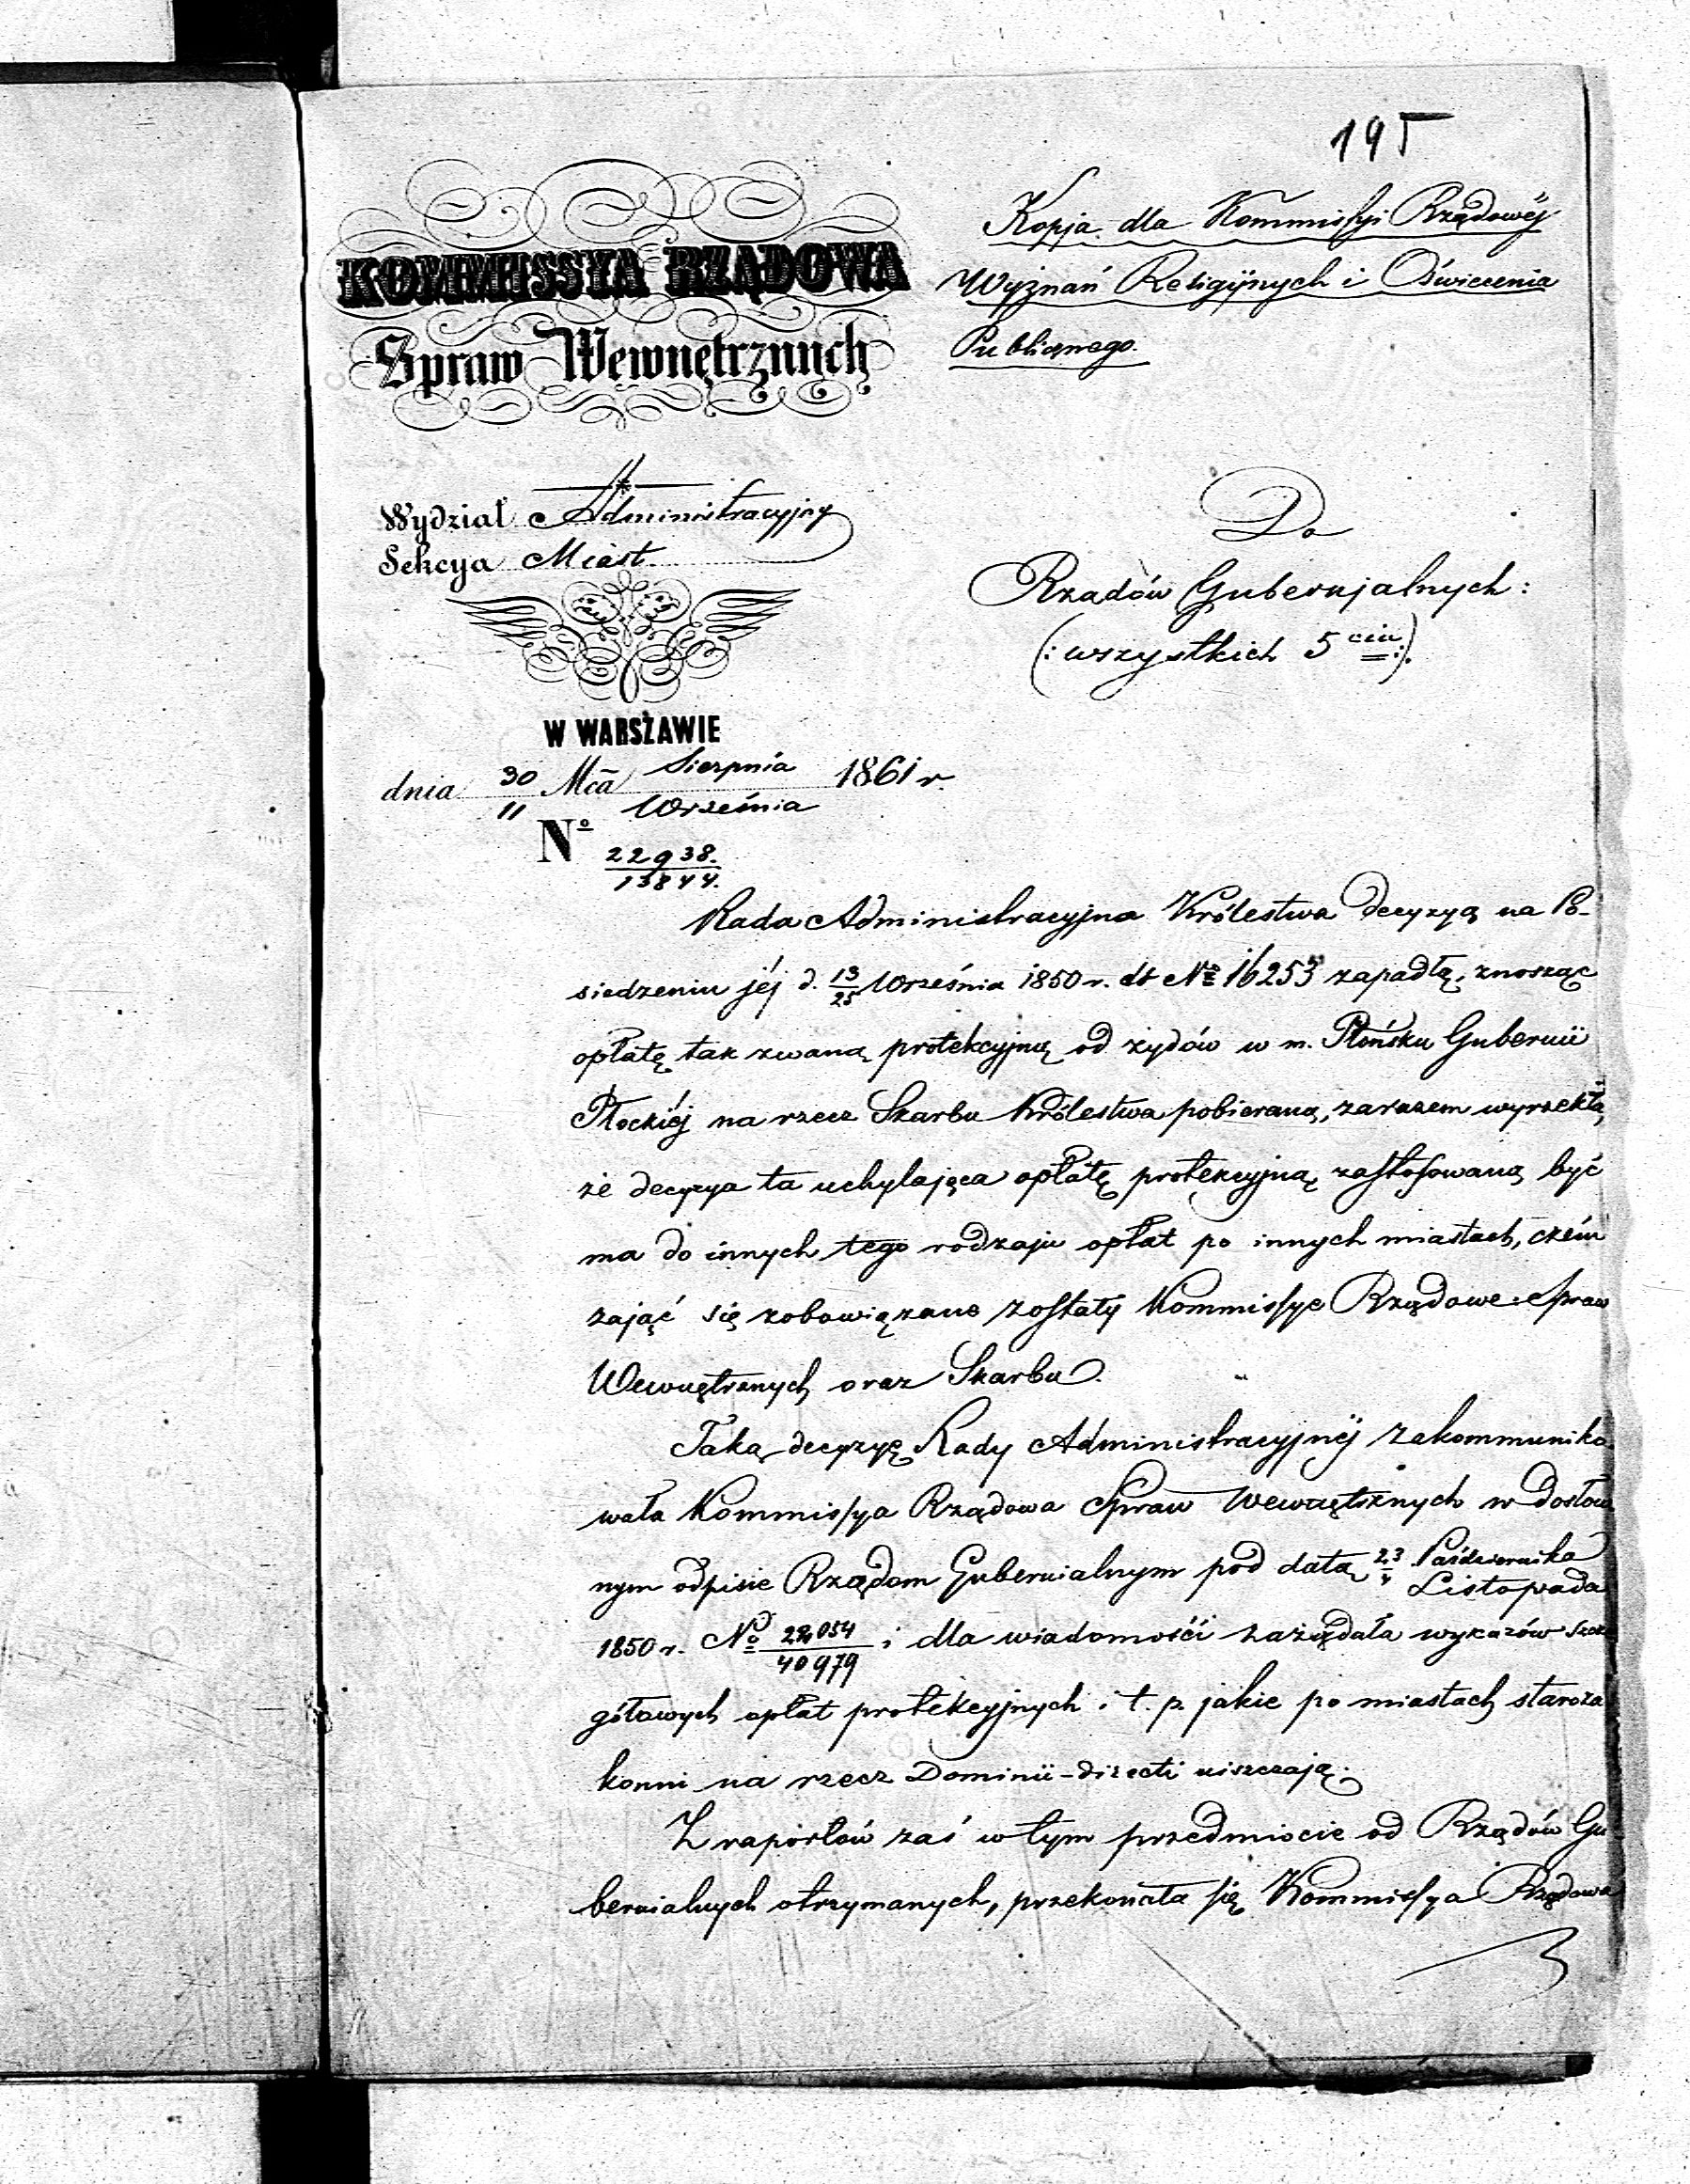 195
Kopja dla Kommissyi Rządowéj
Wyznań Religijnych i Oświecenia
Publicznego.
KOMMISSYA RZĄDOWA
Spraw Wewnętrznych
Wydział Administracyjny
Sekcya Miast.
Do
Rządów Gubernjalnych:
(: wszystkich 5 ciu :).
W WARSZAWIE
dnia 30/11 Mca Sierpnia/Września 1861 r.
No 22938./13844.
Rada Administracyjna Królestwa decyzyą na Po-
siedzeniu jéj d. 13/25 Września 1850 r. do No 16253 zapadłą, znosząc
opłatę tak zwaną protekcyjną od żydów w m. Płońsku Gubernii
Płockiéj na rzecz Skarbu Królestwa pobieraną, zarazem wyrzekła,
że decyzya ta uchylająca opłatę protekcyjną zastosowaną być
ma do innych tego rodzaju opłat po innych miastach, czém
zająć się zobowiązane zostały Kommissye Rządowe: Spraw
Wewnętrznych oraz Skarbu.
Taką decyzyę Rady Administracyjnéj zakommuniko-
wała Kommissya Rządowa Spraw Wewnętrznych w dosłow
nym odpisie Rządom Gubernialnym pod datą 23/4 Października/Listopada
1850 r. No /40979 i dla wiadomości zażądała wykazów szcze
gółowych opłat protekcyjnych i t. p. jakie po miastach staroza
konni na rzecz Dominii-directi uiszczają.
Z raportów zaś w tym przedmiocie od Rządów Gu
bernialnych otrzymanych, przekonała się Kommissya Rządowa